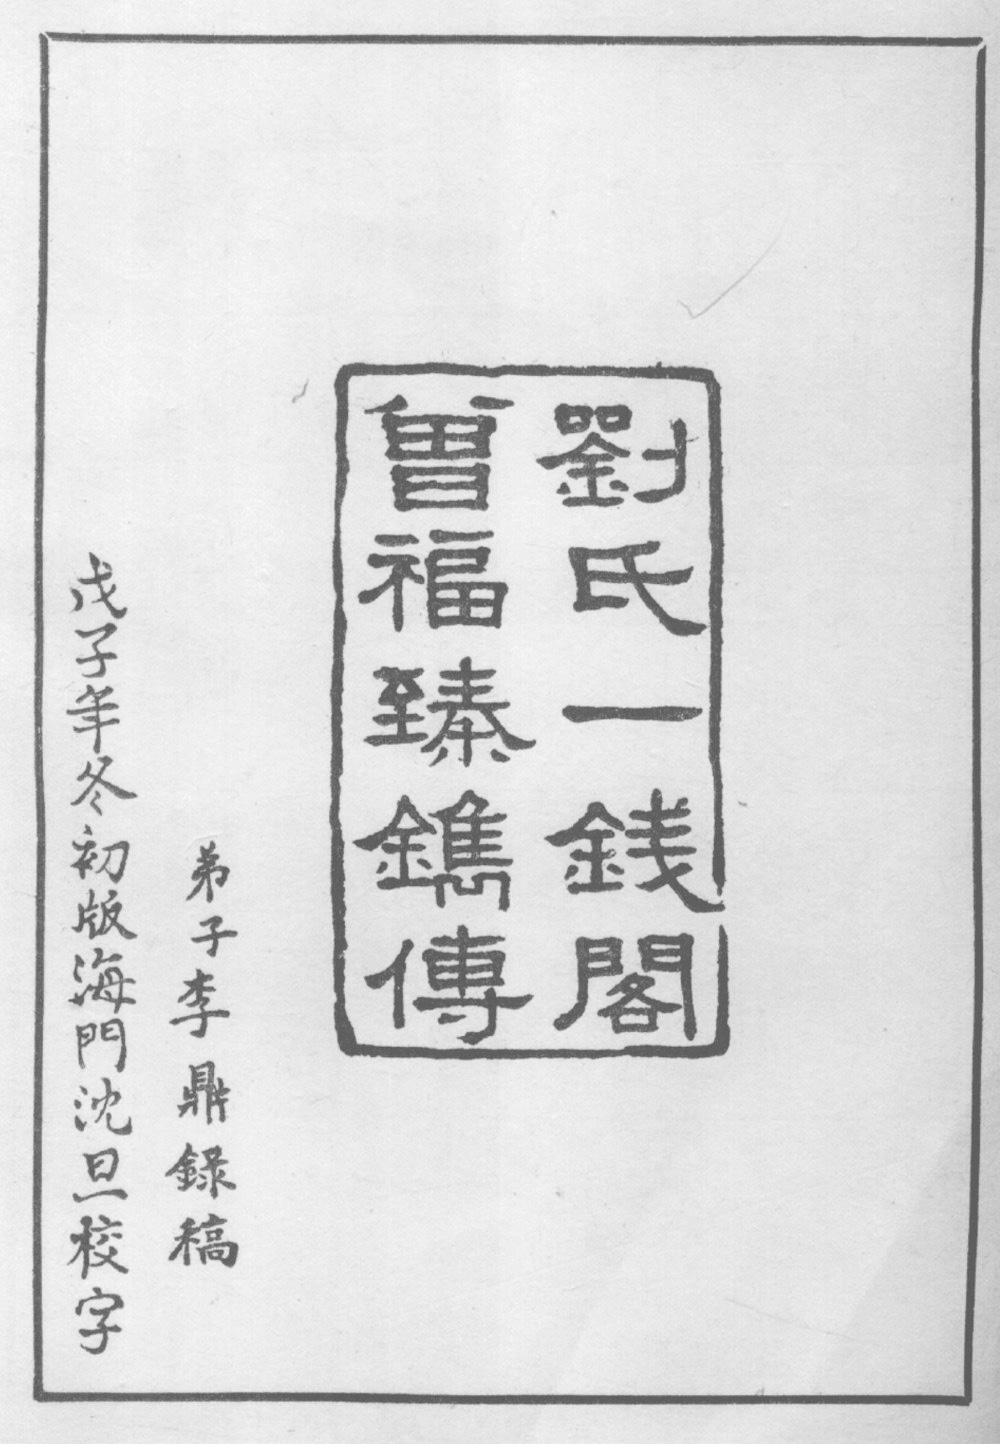 劉氏一銭閣
曾福臻鐫傳
弟子李鼎録稿
戊子年冬初版海門沈旦校字